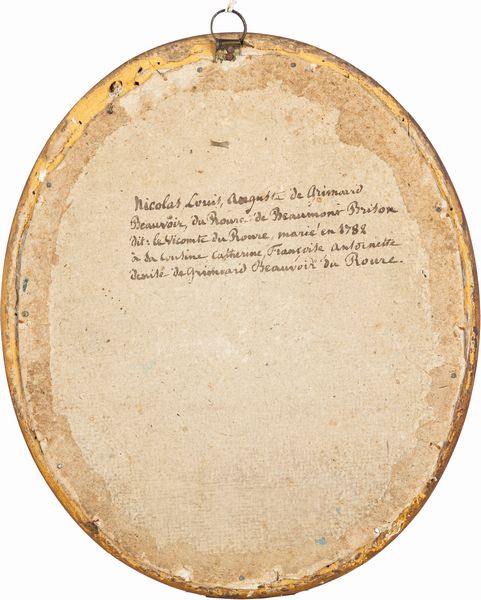 Nicolas, Louis, Auguste de Grimoard
Beauvoir, du Roure de Beaumont Brison
dit: le Vicomte du Roure, marié en 1788
à sa cousine Catherine, Françoise Antoinette
Denise de Grimoard Beauvoir du Roure.